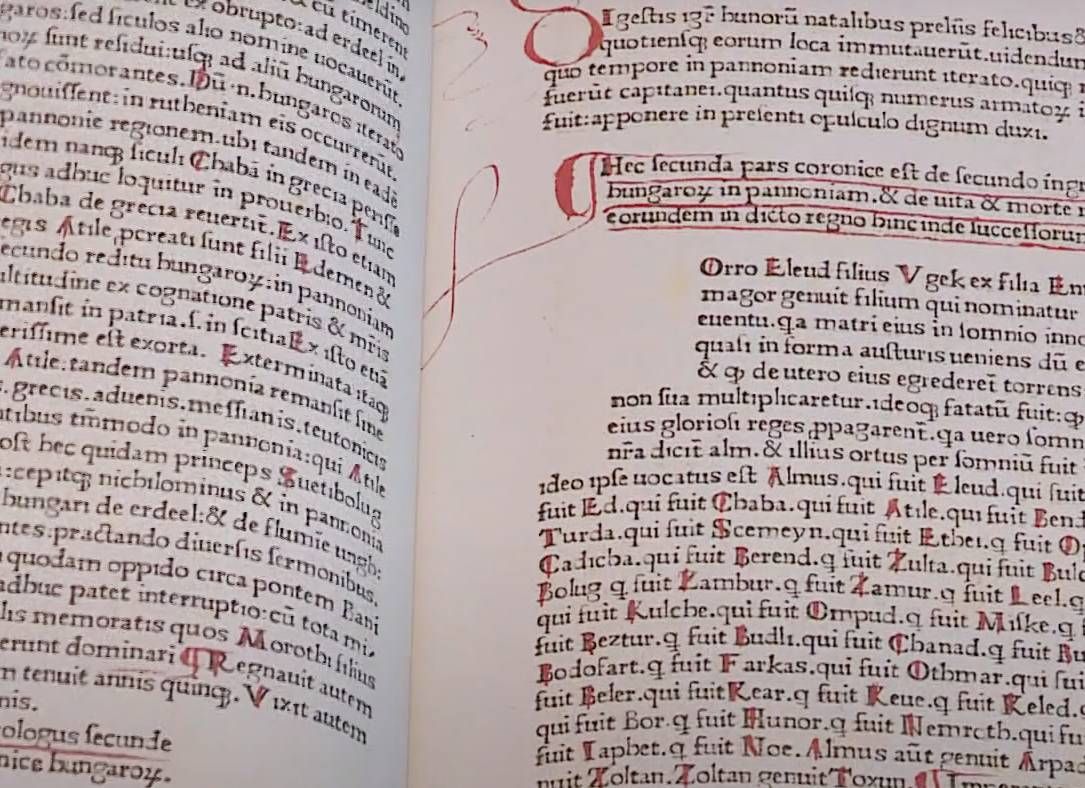 eldino
& cū timerent
ex obrupto: ad erdeel in,
garos: sed siculos alio nomine uocauerūt.
noꝝ sunt residui: usqꝫ ad aliū hungarorum
ato cōmorantes. Dū .n. hungaros iterato
gnouissent: in rutheniam eis occurrerūt.
pannonie regionem. ubi tandem in eadē
idem nanqꝫ siculi Chabā in grecia perisse
gus adhuc loquitur in prouerbio. Tunc
Chaba de grecia reuertit̄. Ex isto etiam
egis Atile ꝓcreati sunt filii Edemen &
ecundo reditu hungaroꝝ: in pannoniam
ultitudine ex cognatione patris & mr̄is
mansit in patria .s. in scitia Ex isto etiā
erissime est exorta. Exterminata itaqꝫ
Atile: tandem pannonia remansit sine
s. grecis. aduenis. messianis. teutonicis
ntibus tm̄modo in pannonia: qui Atile
ost hec quidam princeps Suetibolug
: cepitqꝫ nichilominus & in pannonia
hungari de erdeel: & de flumie ungh:
ntes: practando diuersis sermonibus.
quodam oppido circa pontem Bani
adhuc patet interruptio: cū tota mi,
lis memoratis quos Morothi filius
erunt dominari ¶ Regnauit autem
m tenuit annis quinqꝫ. Vixit autem
nis.
ologus secunde
nice hungaroꝝ.
Igestis igr̄ hunorū natalibus preliis felicibus &
quotiensqꝫ eorum loca immutauerūt. uidendum
quo tempore in pannoniam redierunt iterato. quiqꝫ
fuerūt capitanei. quantus quisqꝫ numerus armatoꝝ
fuit: apponere in presenti opusculo dignum duxi.
¶ Hec secunda pars coronice est de secundo ingr
hungaroꝝ in pannoniam. & de uita & morte
eorundem in dicto regno hinc inde successorum
Orro Eleud filius Vgek ex filia En
magor genuit filium qui nominatur
euentu. qa matri eius in somnio inno
quasi in forma austuris ueniens dū e
& qꝫ de utero eius egrederet̄ torrens
non sua multiplicaretur. ideoqꝫ fatatū fuit: qꝫ
eius gloriosi reges ꝓpagarent̄. qa uero somn
nr̄a dicit̄ alm. & illius ortus per somniū fuit
ideo ipse uocatus est Almus. qui fuit Eleud. qui fuit
fuit Ed. qui fuit Chaba. qui fuit Atile. qui fuit Bend
Turda. qui fuit Scemeyn. qui fuit Ethei. q fuit O
Cadicha. qui fuit Berend. q fuit Zulta. qui fuit Bulc
Bolug q fuit Zambur. q fuit Zamur. q fuit Leel. q
qui fuit Kulche. qui fuit Ompud. q fuit Miske. q
fuit Beztur. q fuit Budli. qui fuit Chanad. q fuit Bu
Bodofart. q fuit Farkas. qui fuit Othmar. qui fui
fuit Beler. qui fuit Kear. q fuit Keue. q fuit Keled.
qui fuit Bor. q fuit Hunor. q fuit Nemroth. qui fu
fuit Iaphet. q fuit Noe. Almus aūt genuit Arpad
nuit Zoltan. Zoltan genuit Toxun. ¶